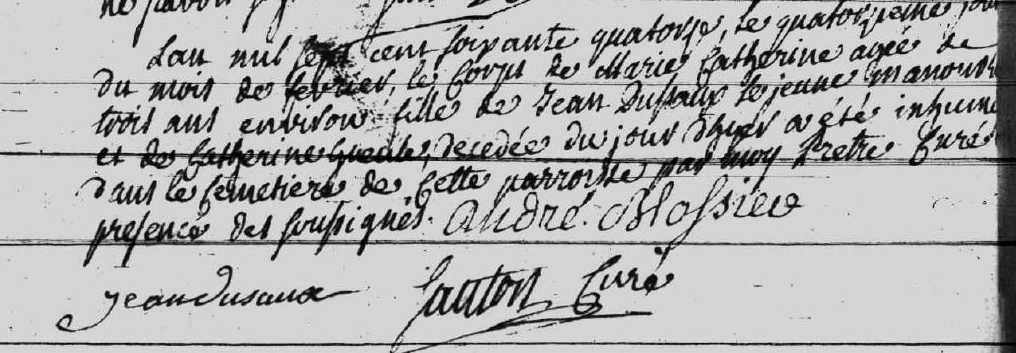 Lan mil sept cent soixante quatorze, le quatorzieme jour
du mois de fevrier, le Corps de Marie Catherine agée de
trois ans environ fille de Jean Dusaux le jeune manouvr
et de Catherine decedée du jour d'hyer a été inhumé
dans le Cemetiere de Cette parroisse par moy Pretre Curé
presence des soussignés. André Blossieo
jean dusaux Curé